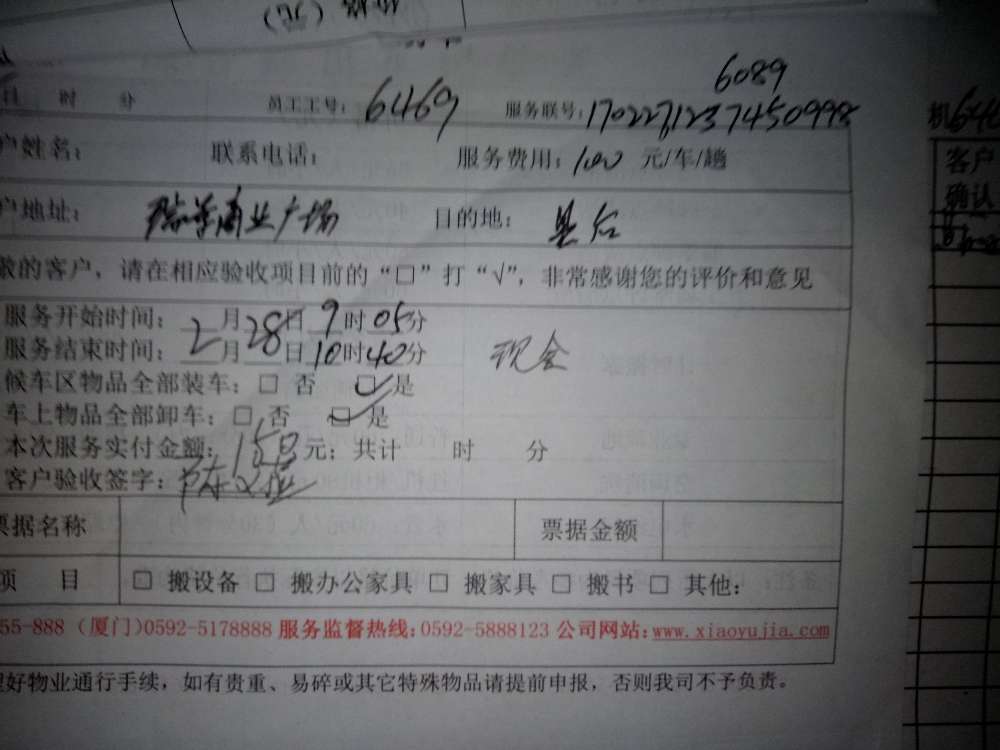 价格（元）
时 分 员工工号：6469 服务联号：1702271237450998
6089
户姓名： 联系电话： 服务费用：100 元/车/趟
户地址： 瑞景商业广场 目的地： 县后
敬的客户，请在相应验收项目前的“□”打“√”，非常感谢您的评价和意见
服务开始时间：2月28日9时05分
服务结束时间：2月28日10时40分 现金
候车区物品全部装车：□ 否 ☑ 是
车上物品全部卸车：□ 否 ☑ 是
本次服务实付金额：150元；共计 时 分
客户验收签字：
票据名称 票据金额
项 目 □ 搬设备 □ 搬办公家具 □ 搬家具 □ 搬书 □ 其他：
55-888（厦门）0592-5178888 服务监督热线：0592-5888123 公司网站：www.xiaoyujia.com
理好物业通行手续，如有贵重、易碎或其它特殊物品请提前申报，否则我司不予负责。
客户
确认